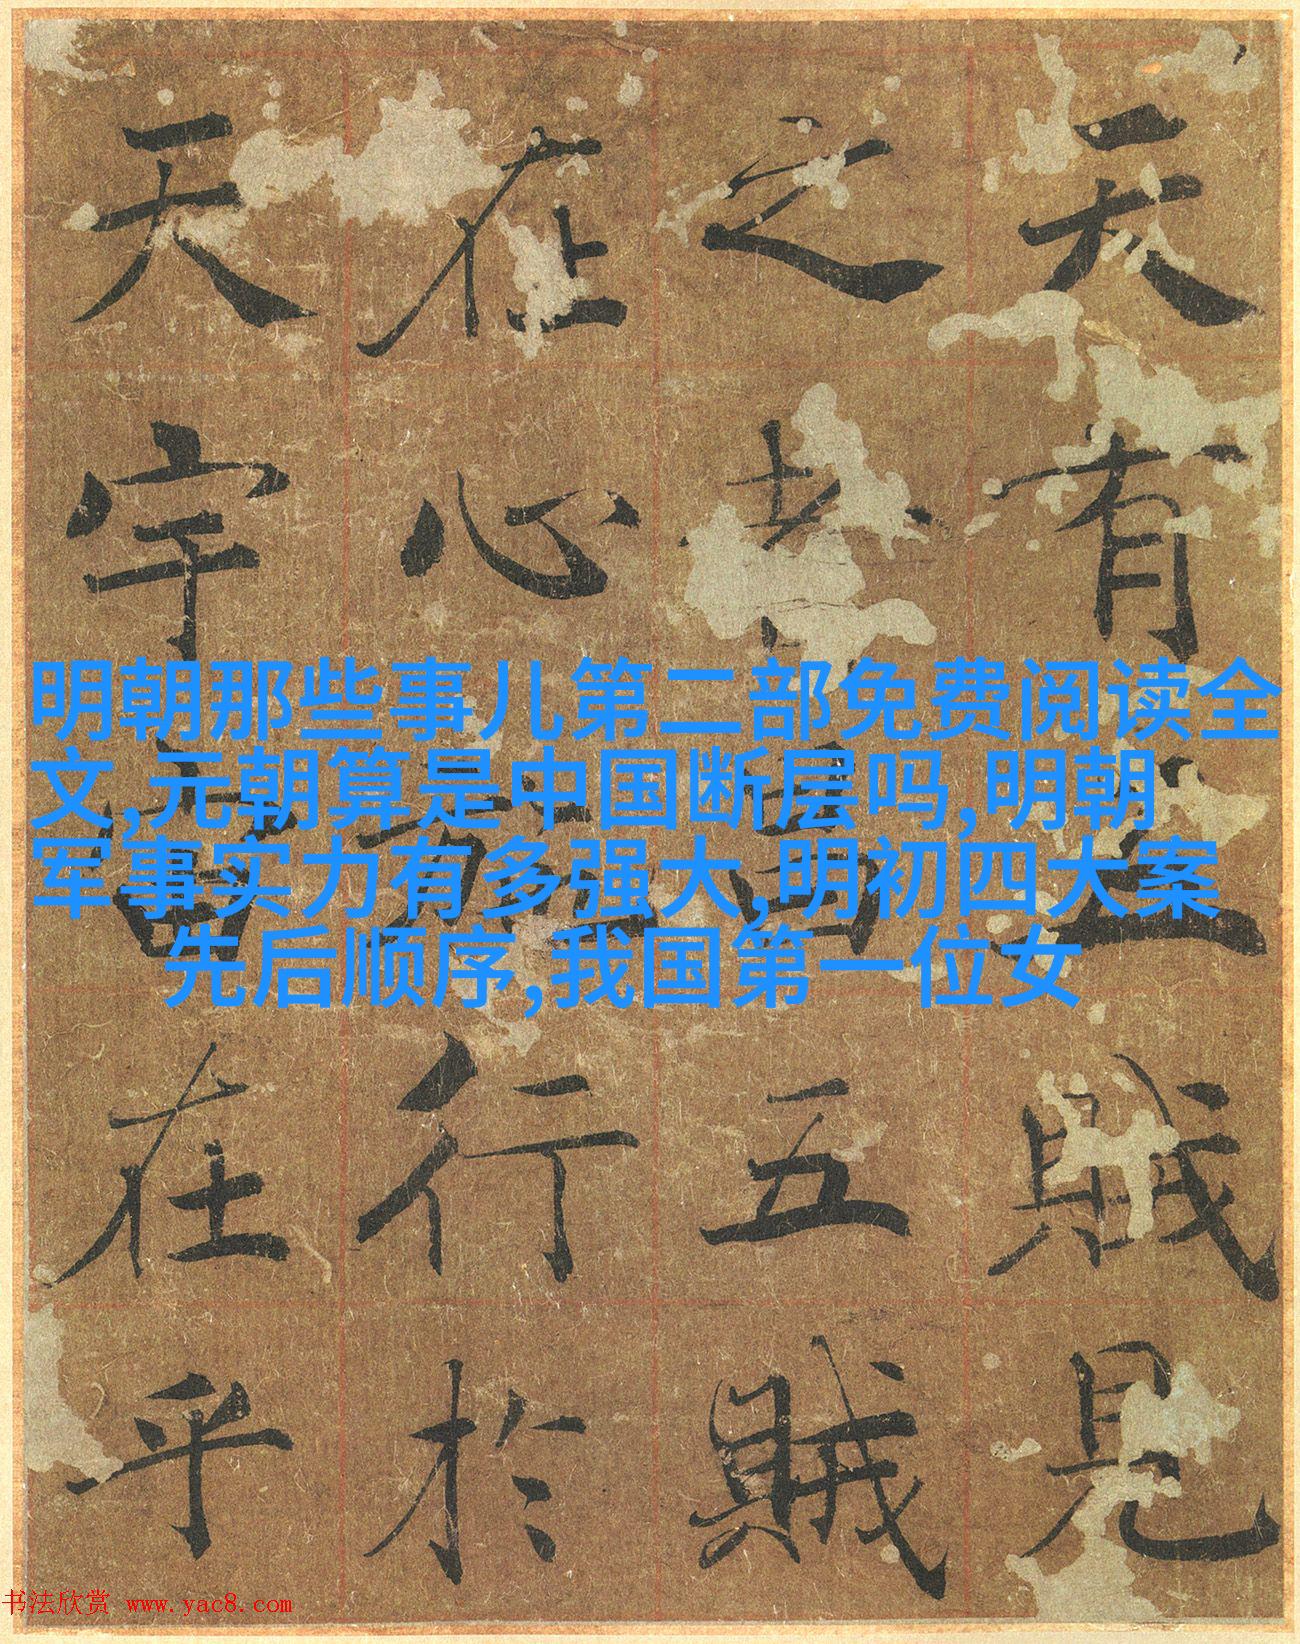 天有五賊見
之者昌五賊
在心施行於
天宇宙在乎
明朝那些事儿第二部免费阅读全
文,元朝算是中国断层吗,明朝
军事实力有多强大,明初四大案
先后顺序,我国第一位女
书法欣赏 www.yac8.com